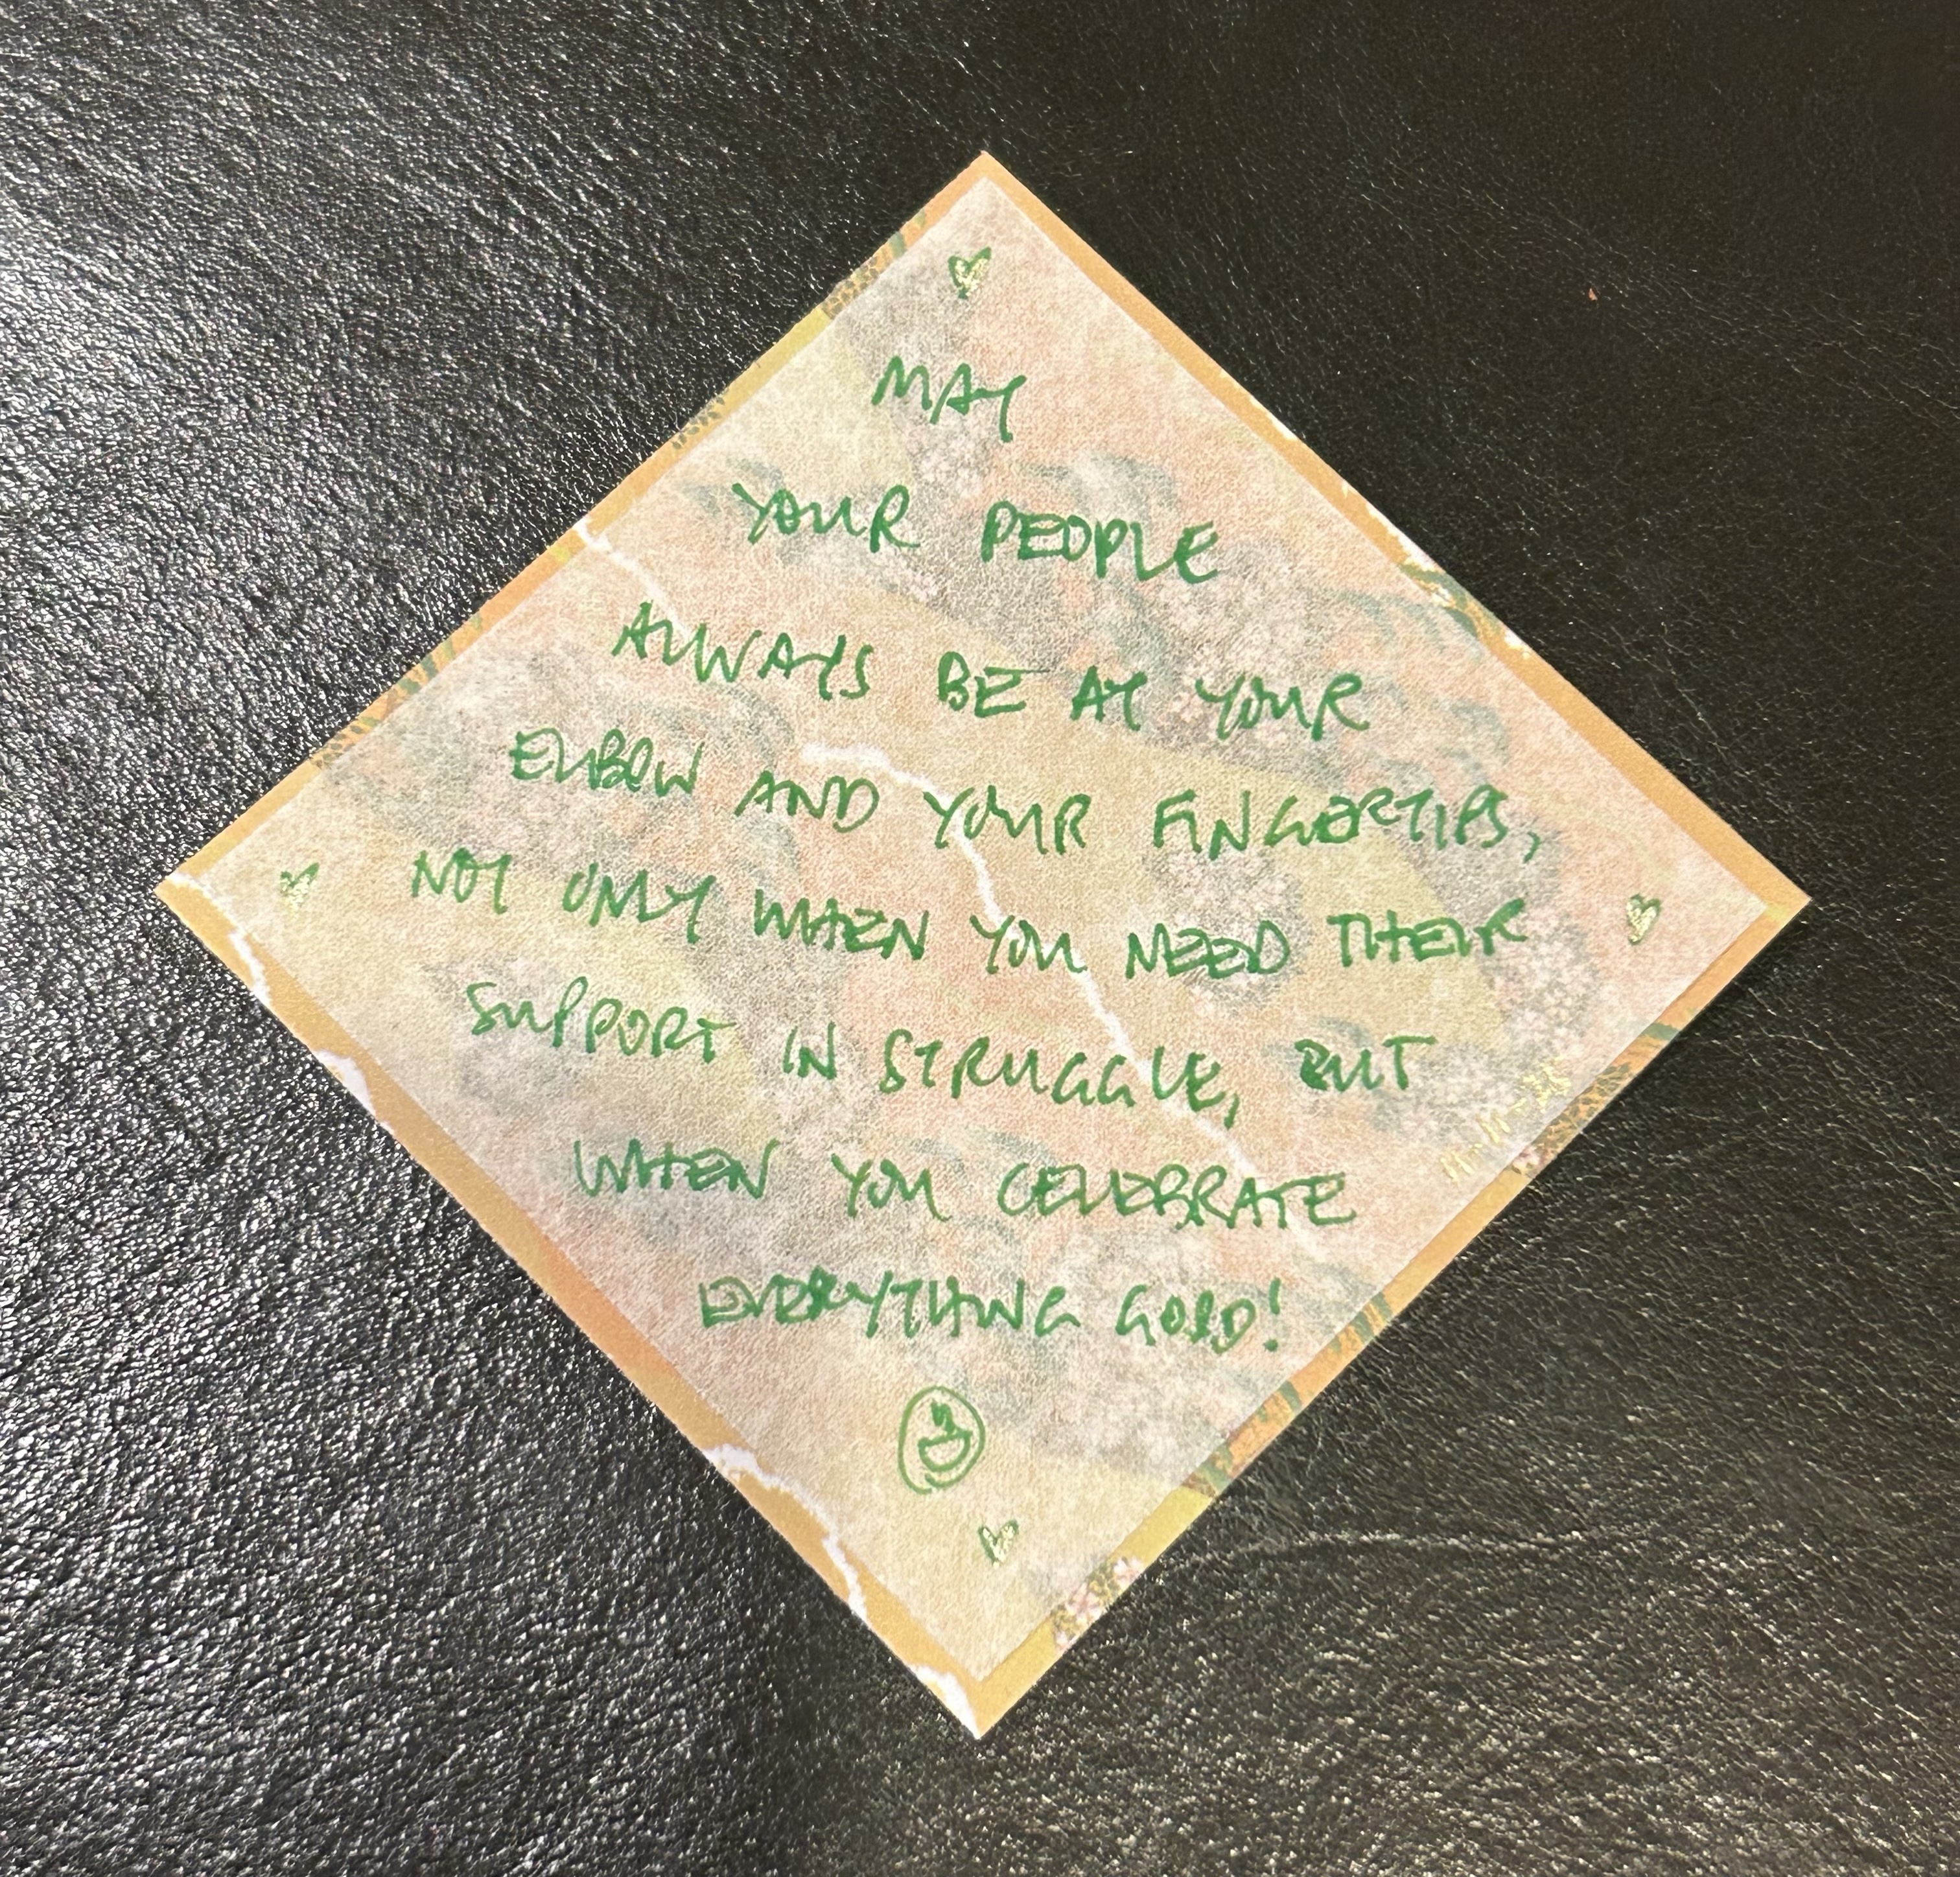 MAY
YOUR PEOPLE
ALWAYS BE AT YOUR
ELBOW AND YOUR FINGERTIPS,
NOT ONLY WHEN YOU NEED THEIR
SUPPORT IN STRUGGLE, BUT
WHEN YOU CELEBRATE
EVERYTHING GOOD!